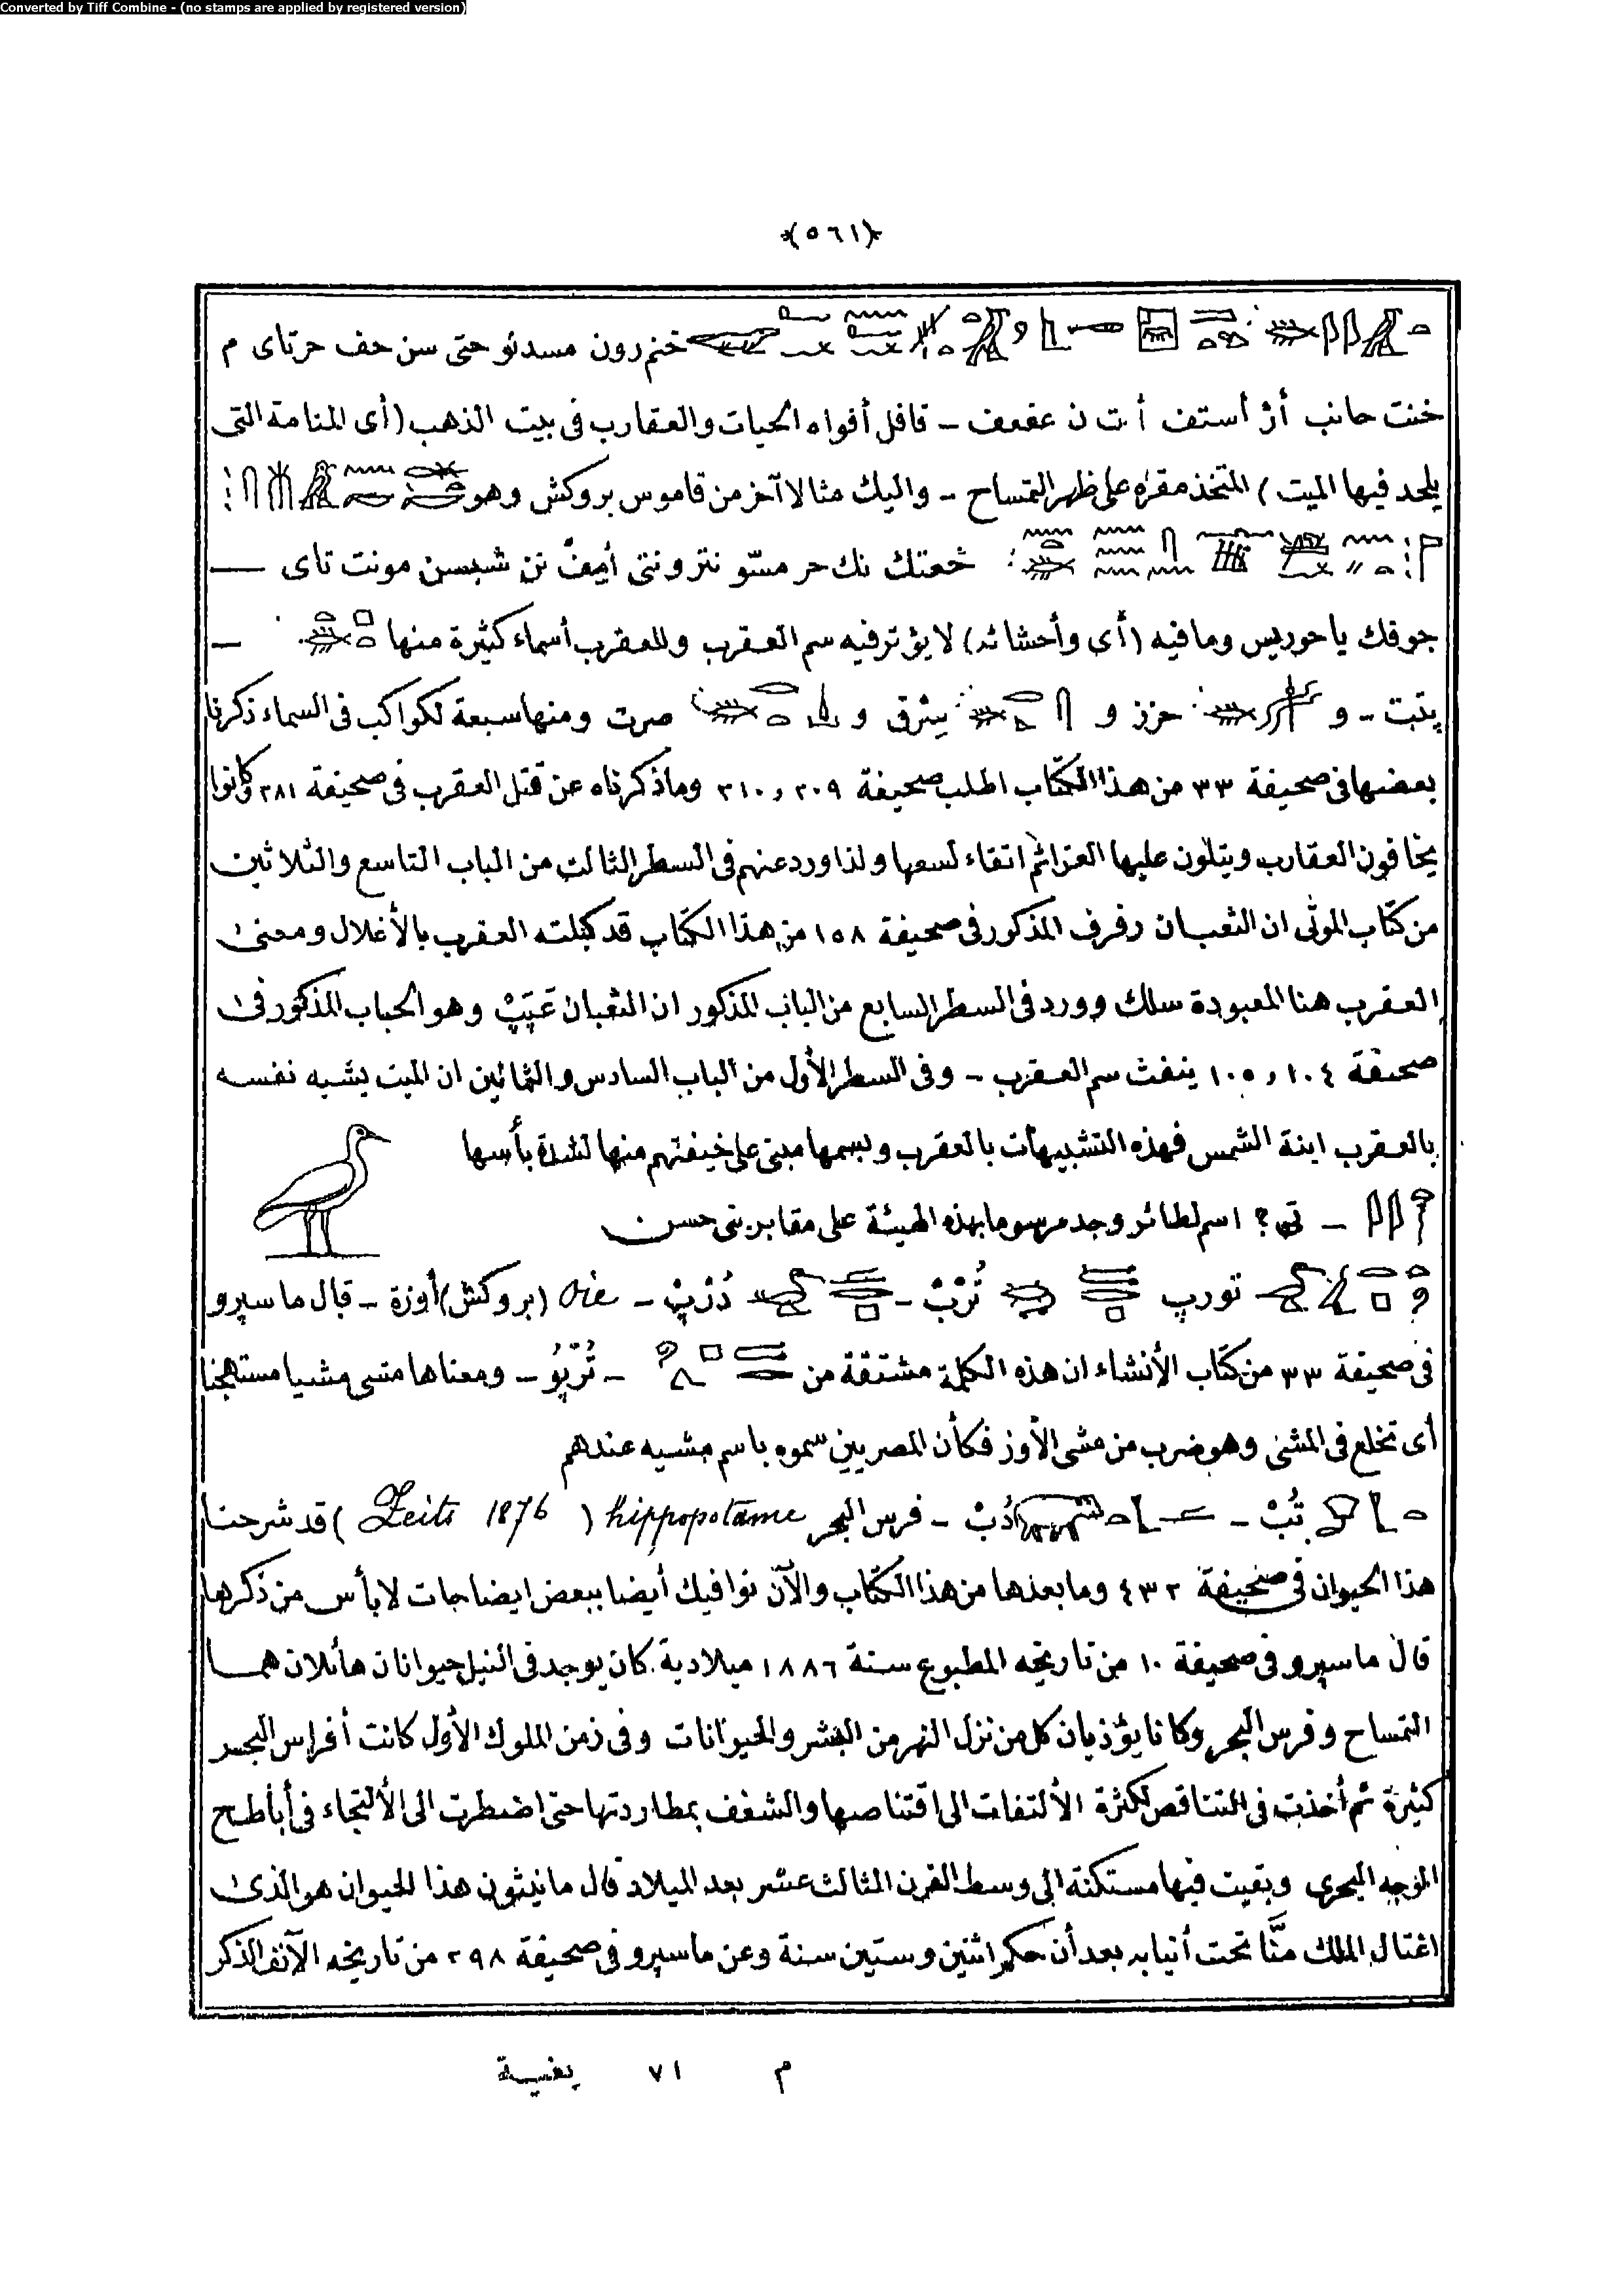 Converted by Tiff Combine - (no stamps are applied by registered version)
﴿٥٦١﴾
ختم رون مسدئو حتى سن حف حرتاى م
خنت حانب أژ أستف أ.ت ن عفعف - قافل أفواه الحيات والعقارب فى بيت الذهب (أى المنامة التى
يلحد فيها الميت) المتخذ مقره على ظهر التمساح - واليك مثالا آخر من قاموس بروكش وهو
خعتك نك حر مسّو نترو نتى أمف نن شبسن مونت تاى —
جوفك يا حوريس وما فيه (أى وأحشائه) لا يؤثر فيه سم العقرب وللعقرب أسماء كثيرة منها -
پتبت - و حزز و سرق و صرت ومنها سبعة لكواكب فى السماء ذكرنا
بعضها فى صحيفة ٣٣ من هذا الكتاب اطلب صحيفة ٢٠٩ و ٢١٠ وما ذكرناه عن قتل العقرب فى صحيفة ٢٨١ وكانوا
يخافون العقارب ويتلون عليها العزائم اتقاء لسعها ولذا ورد عنهم فى السطر الثالث من الباب التاسع والثلاثين
من كتاب الموتى ان الثعبان رفرف المذكور فى صحيفة ١٥٨ من هذا الكتاب قد كبلته العقرب بالأغلال ومعنى
العقرب هنا المعبودة سلك وورد فى السطر السابع من الباب المذكور ان الثعبان عَپَپْ وهو الحباب المذكور فى
صحيفة ١٠٤ و ١٠٥ ينفث سم العقرب - وفى السطر الأول من الباب السادس والثمانين ان الميت يشبه نفسه
بالعقرب ابنة الشمس فهذه التشبيهات بالعقرب وبسمها مبنى على خيفتهم منها لشدة بأسها
- تى ؟ اسم لطائر وجد مرسوما بهذه الهيئة على مقابر بنى حسن
تورپ تُرْبْ - دُرْپْ - Oie (بروكش) أوزة - قال ماسپرو
فى صحيفة ٣٣ من كتاب الأنشاء ان هذه الكلمة مشتقة من - تُرْپُو - ومعناها مشى مشيا مستهجنا
أى تخلع فى المشى وهو ضرب من مشى الأوز فكأن المصريين سموه باسم مشيه عندهم
تُبْ - دُبْ - فرس البحر hippopotame (Zeits 1876) قد شرحنا
هذا الحيوان فى صحيفة ٤٣٢ وما بعدها من هذا الكتاب والآن نوافيك أيضا ببعض ايضاحات لا بأس من ذكرها
قال ماسپرو فى صحيفة ١٠ من تاريخه المطبوع سنة ١٨٨٦ ميلادية كان يوجد فى النيل حيوانان هائلان هما
التمساح وفرس البحر وكانا يؤذيان كل من نزل النهر من البشر والحيوانات وفى زمن الملوك الأول كانت أفراس البحر
كثيرة ثم أخذت فى التناقص لكثرة الألتفات الى اقتناصها والشغف بمطاردتها حتى اضطرت الى الألتجاء فى أباطح
الوجه البحرى وبقيت فيها مستكنة الى وسط القرن الثالث عشر بعد الميلاد قال مانيثون هذا الحيوان هو الذى
اغتال الملك منّا تحت أنيابه بعد أن حكم اثنين وستين سنة وعن ماسپرو فى صحيفة ٢٩٨ من تاريخه الآنف الذكر
م ٧١ بغية